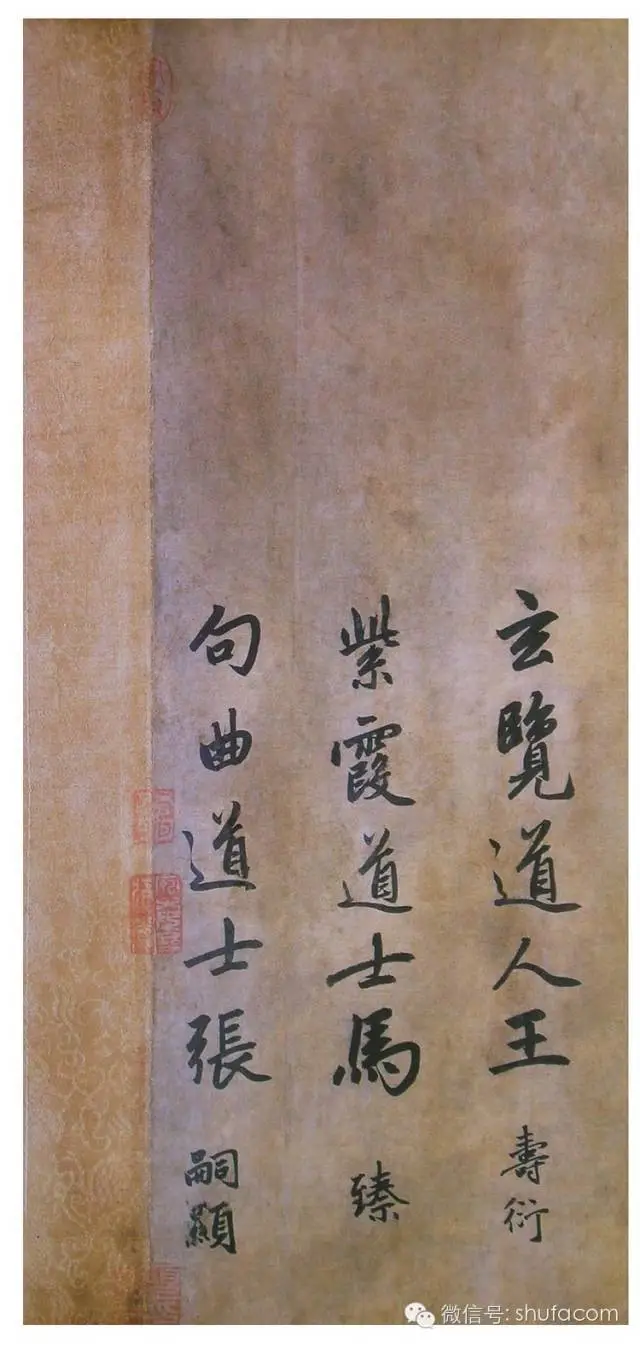 玄覽道人王壽衍
紫霞道士馬臻
句曲道士張嗣顯
微信号: shufacom